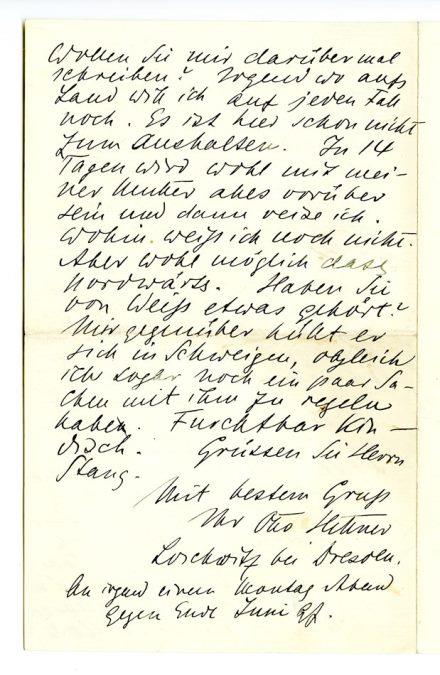 Wollen Sie mir darüber mal
schreiben? Irgend wo aufs
Land will ich auf jeden Fall
noch. Es ist hier schon nicht
zum Aushalten. In 14
Tagen wird wohl mit mei-
ner Mutter alles vorüber
sein und dann reise ich.
Wohin weiß ich noch nicht.
Aber wohl möglich dass
nordwärts. Haben Sie
von Weiß etwas gehört?
Mir gegenüber hüllt er
sich in Schweigen, obgleich
ich sogar noch ein paar Sa-
chen mit ihm zu regeln
haben. Furchtbar kin-
disch. Grüssen Sie Herrn
Stang.
Mit bestem Gruss
Ihr Otto Hettner
Loschwitz bei Dresden.
An irgend einem Montag Abend
gegen Ende Juni